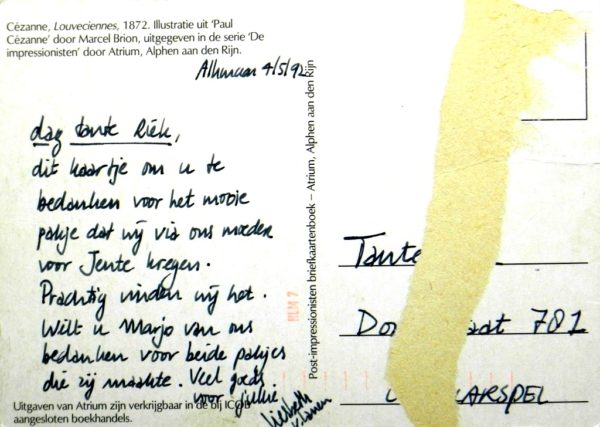 Cézanne, Louveciennes, 1872. Illustratie uit ‘Paul
Cézanne’ door Marcel Brion, uitgegeven in de serie ‘De
impressionisten’ door Atrium, Alphen aan den Rijn.
Alkmaar 4/5/92
dag tante Riek,
dit kaartje om u te
bedanken voor het mooie
pakje dat wij via ons moeder
voor Jente kregen.
Prachtig vinden wij het.
Wilt u Marjo van ons
bedanken voor beide pakjes
die zij maakte. Veel goeds
voor jullie.
Liesbeth
Uitgaven van Atrium zijn verkrijgbaar in de bij ICOB
aangesloten boekhandels.
Post-impressionisten briefkaartenboek – Atrium, Alphen aan den Rijn
Tante
Do aat 701
ARSPEL